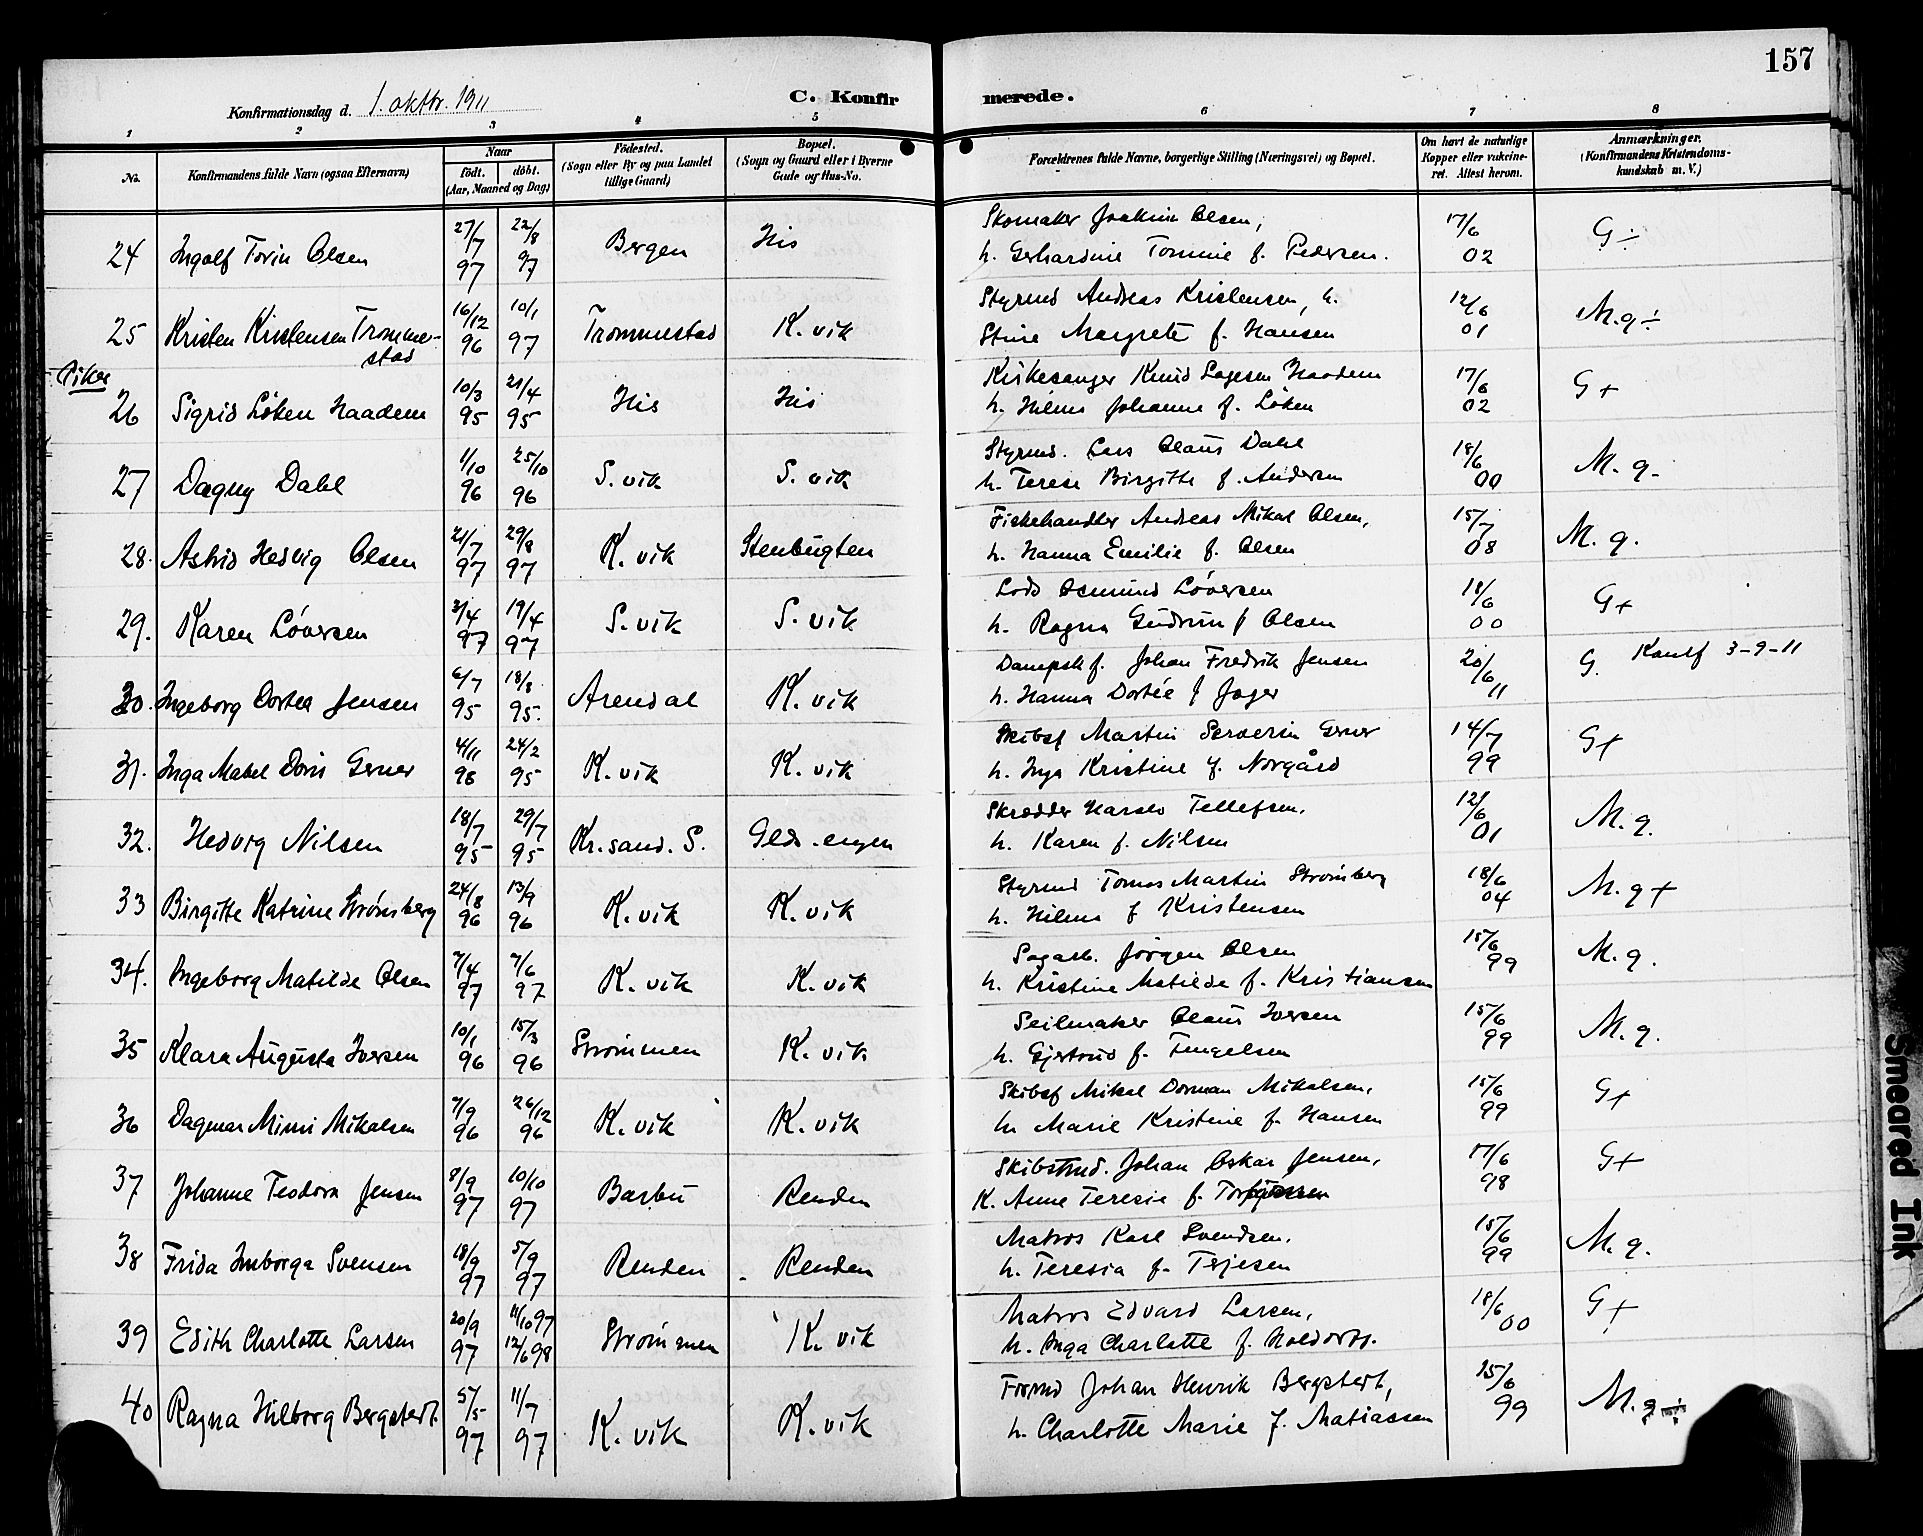 157
Konfirmationsdag d. 1. oktbr. 1911 C. Konfirmerede.
1 2 3 4 5 6 7 8
No. Konfirmandens fulde Navn (ogsaa Efternavn) Naar födt. döbt. (Aar, Maaned og Dag) Födested. (Sogn eller By og paa Landet tillige Gaard) Bopæl. (Sogn og Gaard eller i Byerne Gade og Hus-No. Forældrenes fulde Navne, borgerlige Stilling (Næringsvei) og Bopæl. Om havt de naturlige Kopper eller vakcineret. Attest herom. Anmærkninger. (Konfirmandens Kristendomskundskab m. V.)
24 Ingolf Torin Olsen 27/7 97 22/8 97 Bergen His Skomaker Joakim Olsen, h. Gerhardine Tomine f. Pedersen. 17/6 02 G ÷
25 Kristen Kristensen Trommestad 16/12 96 10/1 97 Trommestad K. vik Styrmd Andreas Kristensen, h. Stine Margrete f. Hansen 12/6 01 M.g ÷
Piker
26 Sigrid Løken Haadem 10/3 95 21/4 95 His His Kirkesanger Knud Lagesen Haadem h. Hilma Johanne f. Løken 17/6 02 G +
27 Dagny Dahl 1/10 96 25/10 96 S. vik S. vik Styrmd. Lars Claus Dahl h. Terese Birgitte f. Andersen 18/6 00 M. g -
28. Astrid Hedvig Olsen 21/7 97 29/8 97 K. vik Stenbugten Fiskehandler Andreas Mikal Olsen, h. Hanna Emilie f. Olsen 15/7 08 M. g.
29. Karen Løversen 3/4 97 19/4 97 S. vik S. vik Lods Osmund Løversen h. Ragna Gudrun f Olsen 18/6 00 G +
30. Ingeborg Dortea Jensen 6/7 95 18/8 95. Arendal K. vik Dampsk f. Johan Fredrik Jensen h. Hanna Dortée f Jager 20/6 11 G. Konf 3-9-11
31. Inga Mabel Doris Gerner 4/11 96 24/2 95 K. vik K. vik Skibsf Martin Serverin Gerner h. Inga Kristine f. Norgård 14/7 99 G +
32. Hedvig Nilsen 18/7 95 29/7 95 Kr. sand. S. Geds.engen Skrædder Harald Tellefsen. h. Karen f. Nilsen 12/6 01 M. g.
33 Birgitte Katrine Strømsberg 24/8 96 13/9 96 K. vik K. vik Styrmd Tomas Martin Strømberg h. Hilma f Kristensen 18/6 04 M. g +
34. Ingeborg Matilde Olsen 7/4 97 7/6 97 K. vik K. vik Sagarb. Jørgen Olsen h. Kristine Matilde f. Kristiansen 15/6 99 M. g.
35 Klara Augusta Iversen 10/1 96 15/3 96 Strømmen K. vik Seilmaker Claus Iversen h. Gjertrud f. Tengelsen 15/6 99 M. g.
36 Dagmar Mimi Mikalsen 7/9 96 26/12 96 K. vik K. vik Skibsf Mikal Dorman Mikalsen, h. Marie Kristine f. Hansen 15/6 99 G +
37 Johanne Teodora Jensen 8/9 97 10/10 97 Barbu Renden Skibstmd. Johan Oskar Jensen, K. Anne Teresie f. 17/6 98 G +
38 Frida Imborga Svensen 18/9 97 5/9 97 Renden Renden Matros Karl Svendsen. h. Teresia f. Terjesen 15/6 99 M. g.
39 Edith Charlotte Larsen 20/9 97 11/10 97 12/6 98 Strømmen K. vik Matros Edvard Larsen, h. Inga Charlotte f. 18/6 00 G +
40 Ragna Hilborg Bergstert. 5/5 97 11/7 97 K. vik K. vik Formd Johan Henrik Bergstert, h. Charlotte Marie f. Matiassen 15/6 99 M. g ÷
Smeared Ink